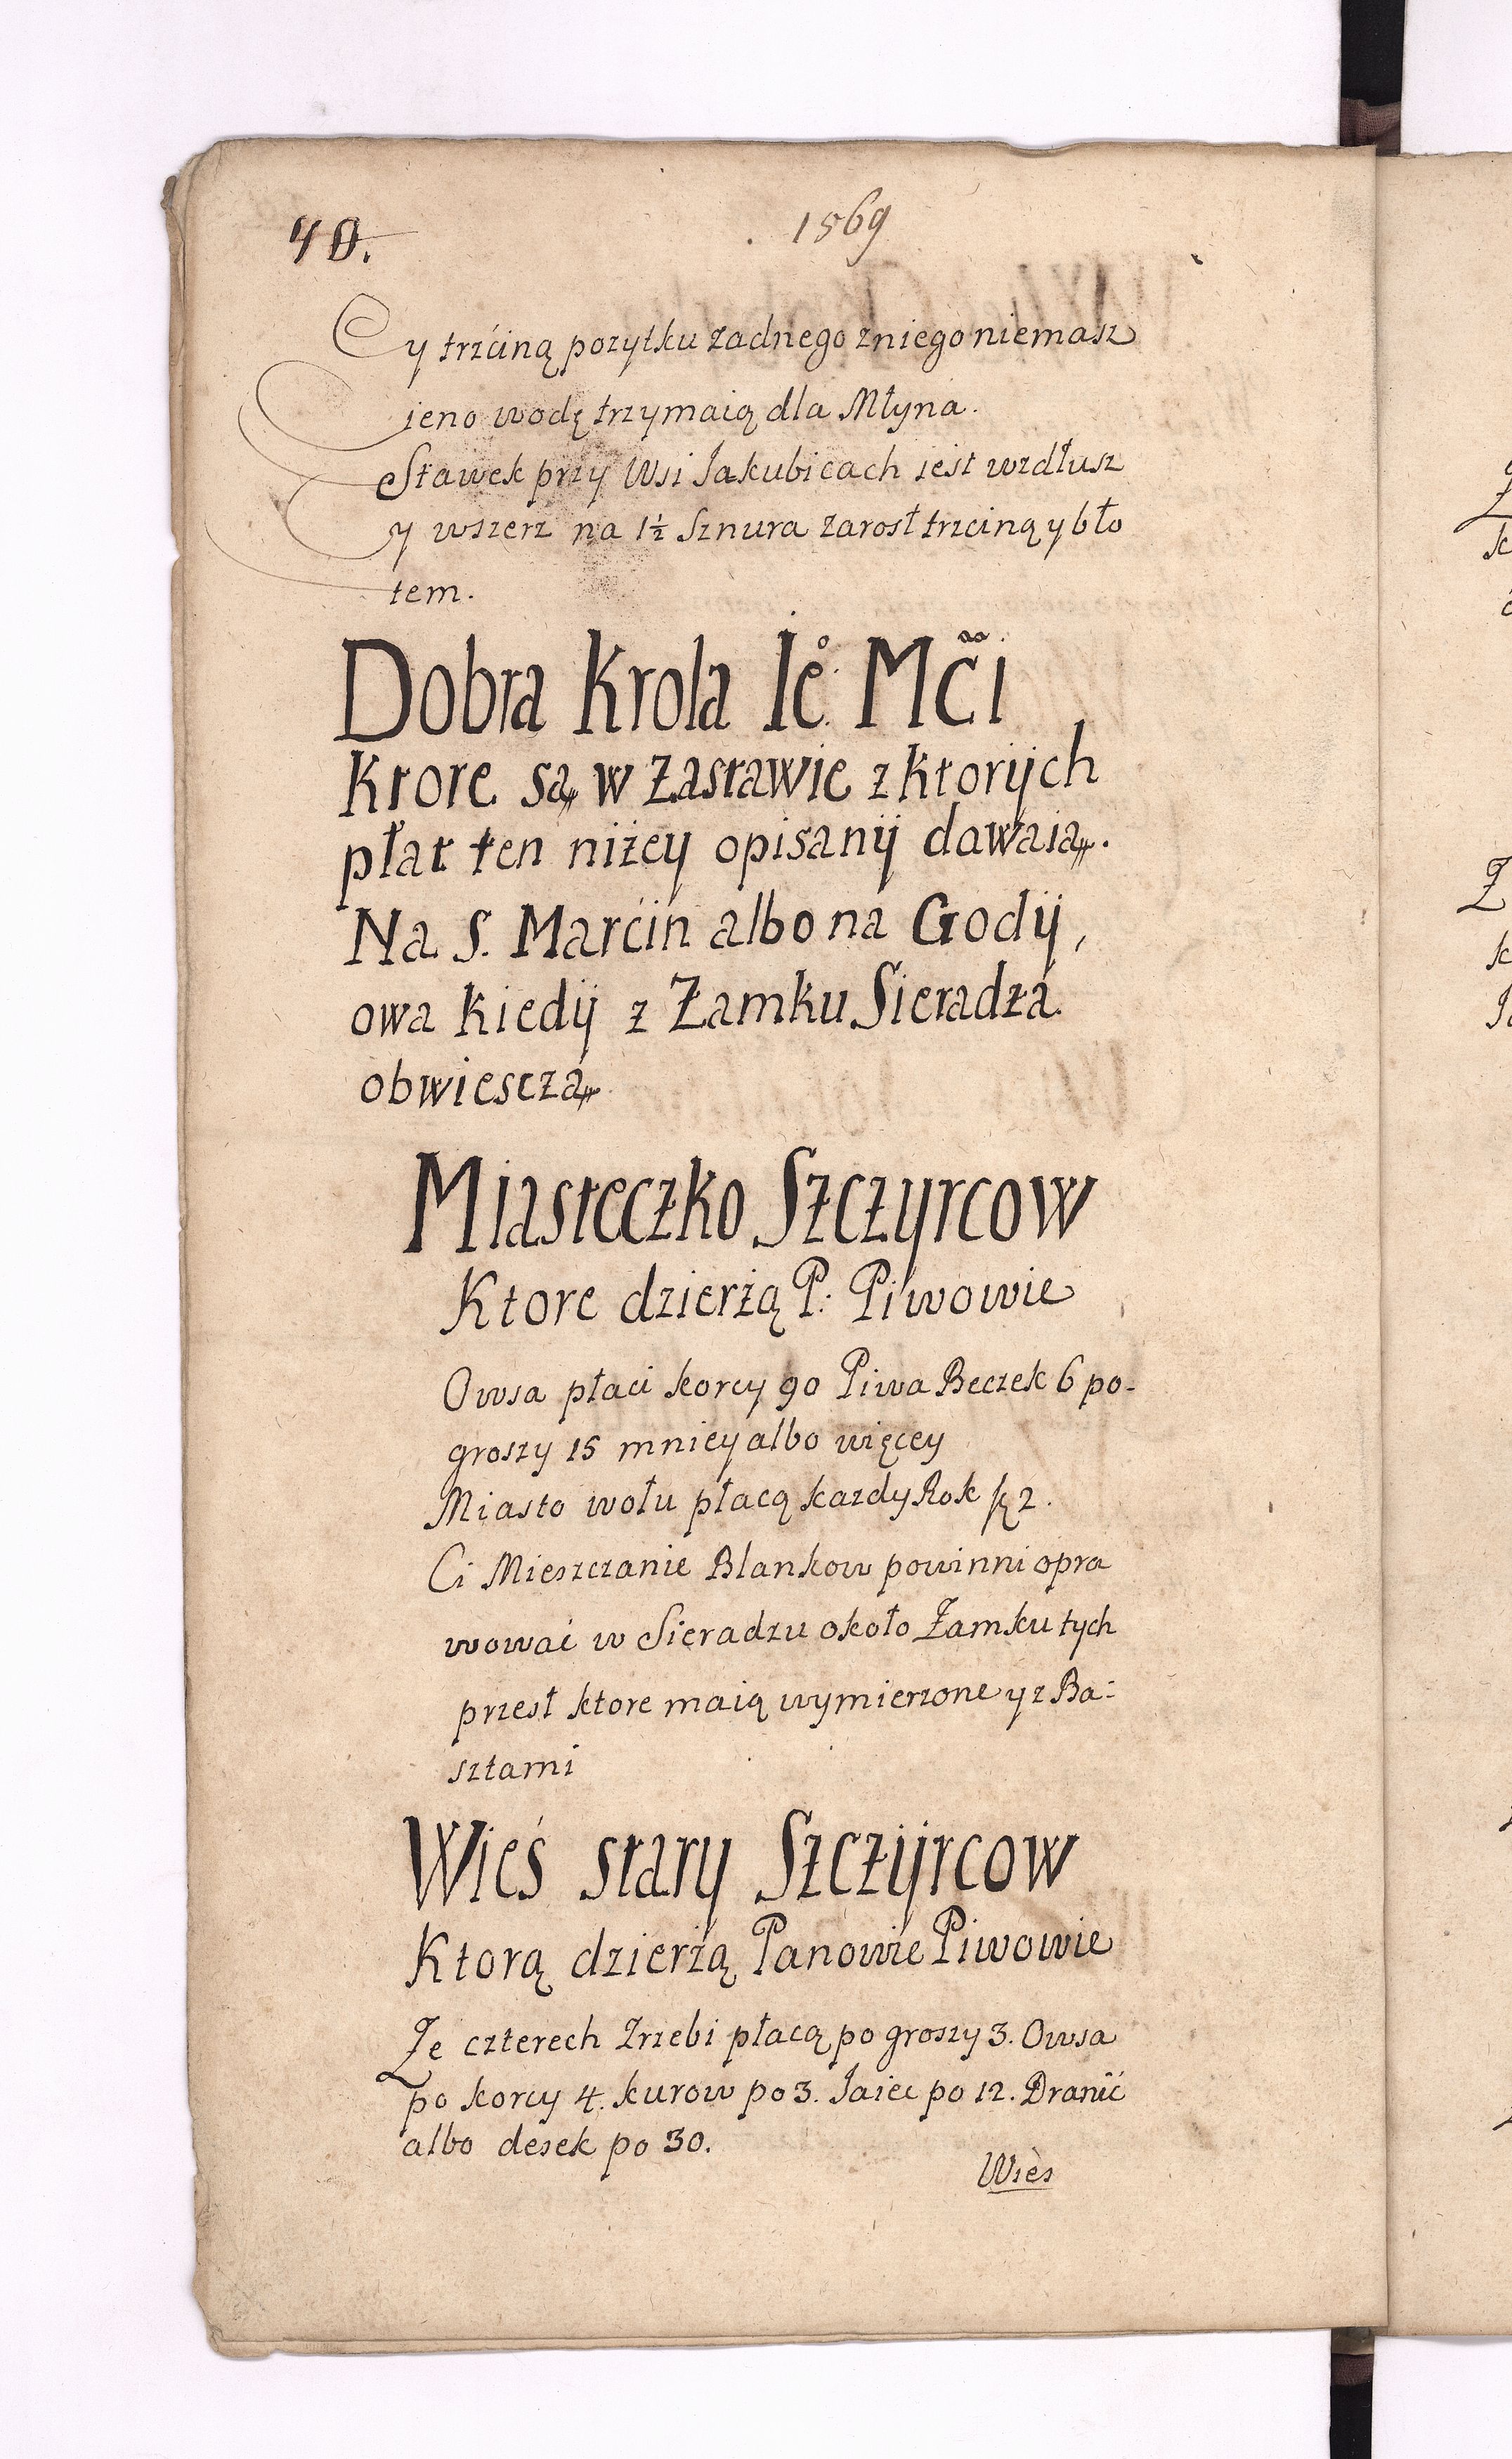 40.
1569
y trzciną pozytku zadnego zniego niemasz
ieno wodę trzymaią dla Młyna.
Stawek przy Wsi Jakubicach iest wzdłusz
y wszerz na 1½ Sznura zarosł trzciną y bło
tem.
Dobra Krola Ie̊: Mc̃i
Ktore są w Zastawie z ktorÿch
płat ten niżey opisanÿ dawaią.
Na S. Marcin albo na Godÿ,
owa kiedÿ z Zamku Sieradza
obwiesczą
Miasteczko Szczyrcow
Ktore dzierżą P: Piwowie
Owsa płaci korcy 90 Piwa Beczek 6 po-
groszy 15 mniey albo więcey
Miasto wołu płacą kazdy Rok 2.
Ci Mieszczanie Blankow powinni opra
wować w Sieradzu około Zamku tych
przesł ktore maią wymierzone y z Ba:
sztami
Wieś stary Szczÿrcow
Ktorą dzierżą Panowie Piwowie
Ze czterech Zrzebi płacą po groszy 3. Owsa
po korcy 4. kurow po 3. Jaiec po 12. Dranic
albo desek po 30.
Wiès